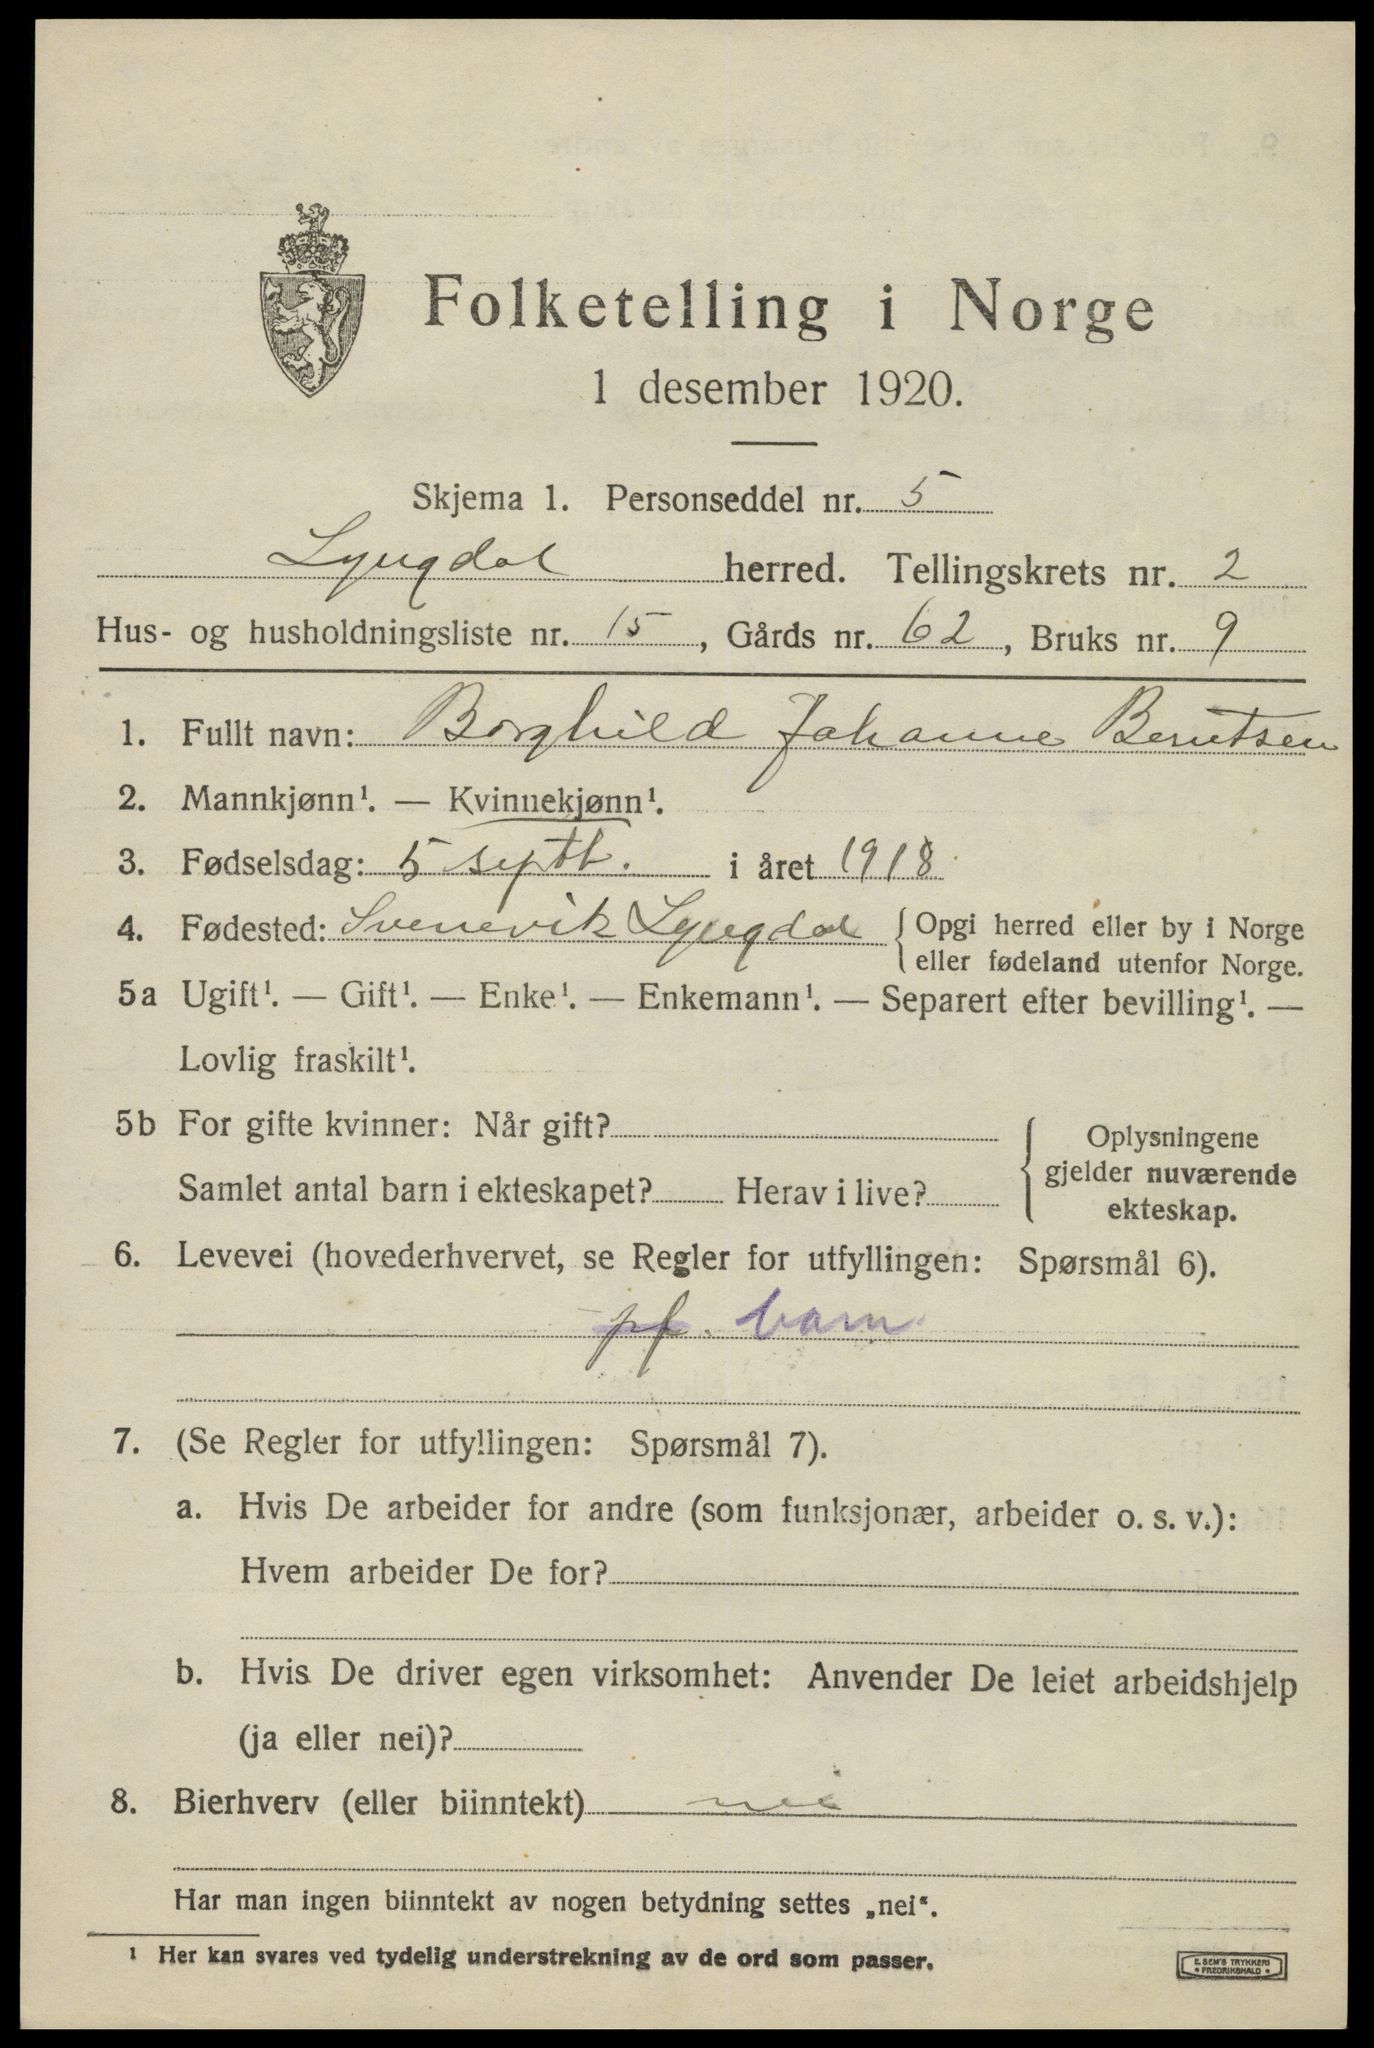 Folketelling i Norge
1 desember 1920.
Skjema 1. Personseddel nr. 5
Lyngdal herred. Tellingskrets nr. 2
Hus- og husholdningsliste nr. 15, Gårds nr. 62, Bruks nr. 9
1. Fullt navn: Borghild Johanne Berntsen
2. Mannkjønn¹. — Kvinnekjønn¹.
3. Fødselsdag: 5 septb. i året 1918
4. Fødested: Svenevik Lyngdal { Opgi herred eller by i Norge
eller fødeland utenfor Norge.
5a Ugift¹. — Gift¹. — Enke¹. — Enkemann¹. — Separert efter bevilling¹. —
Lovlig fraskilt¹.
5b For gifte kvinner: Når gift?
Samlet antal barn i ekteskapet? Herav i live?
{ Oplysningene
gjelder nuværende
ekteskap.
6. Levevei (hovederhvervet, se Regler for utfyllingen: Spørsmål 6).
pf. barn
7. (Se Regler for utfyllingen: Spørsmål 7).
a. Hvis De arbeider for andre (som funksjonær, arbeider o. s. v.):
Hvem arbeider De for?
b. Hvis De driver egen virksomhet: Anvender De leiet arbeidshjelp
(ja eller nei)?
8. Bierhverv (eller biinntekt) nei
Har man ingen biinntekt av nogen betydning settes „nei“.
¹ Her kan svares ved tydelig understrekning av de ord som passer.
E. SEM'S TRYKKERI
• FREDRIKSHALD •